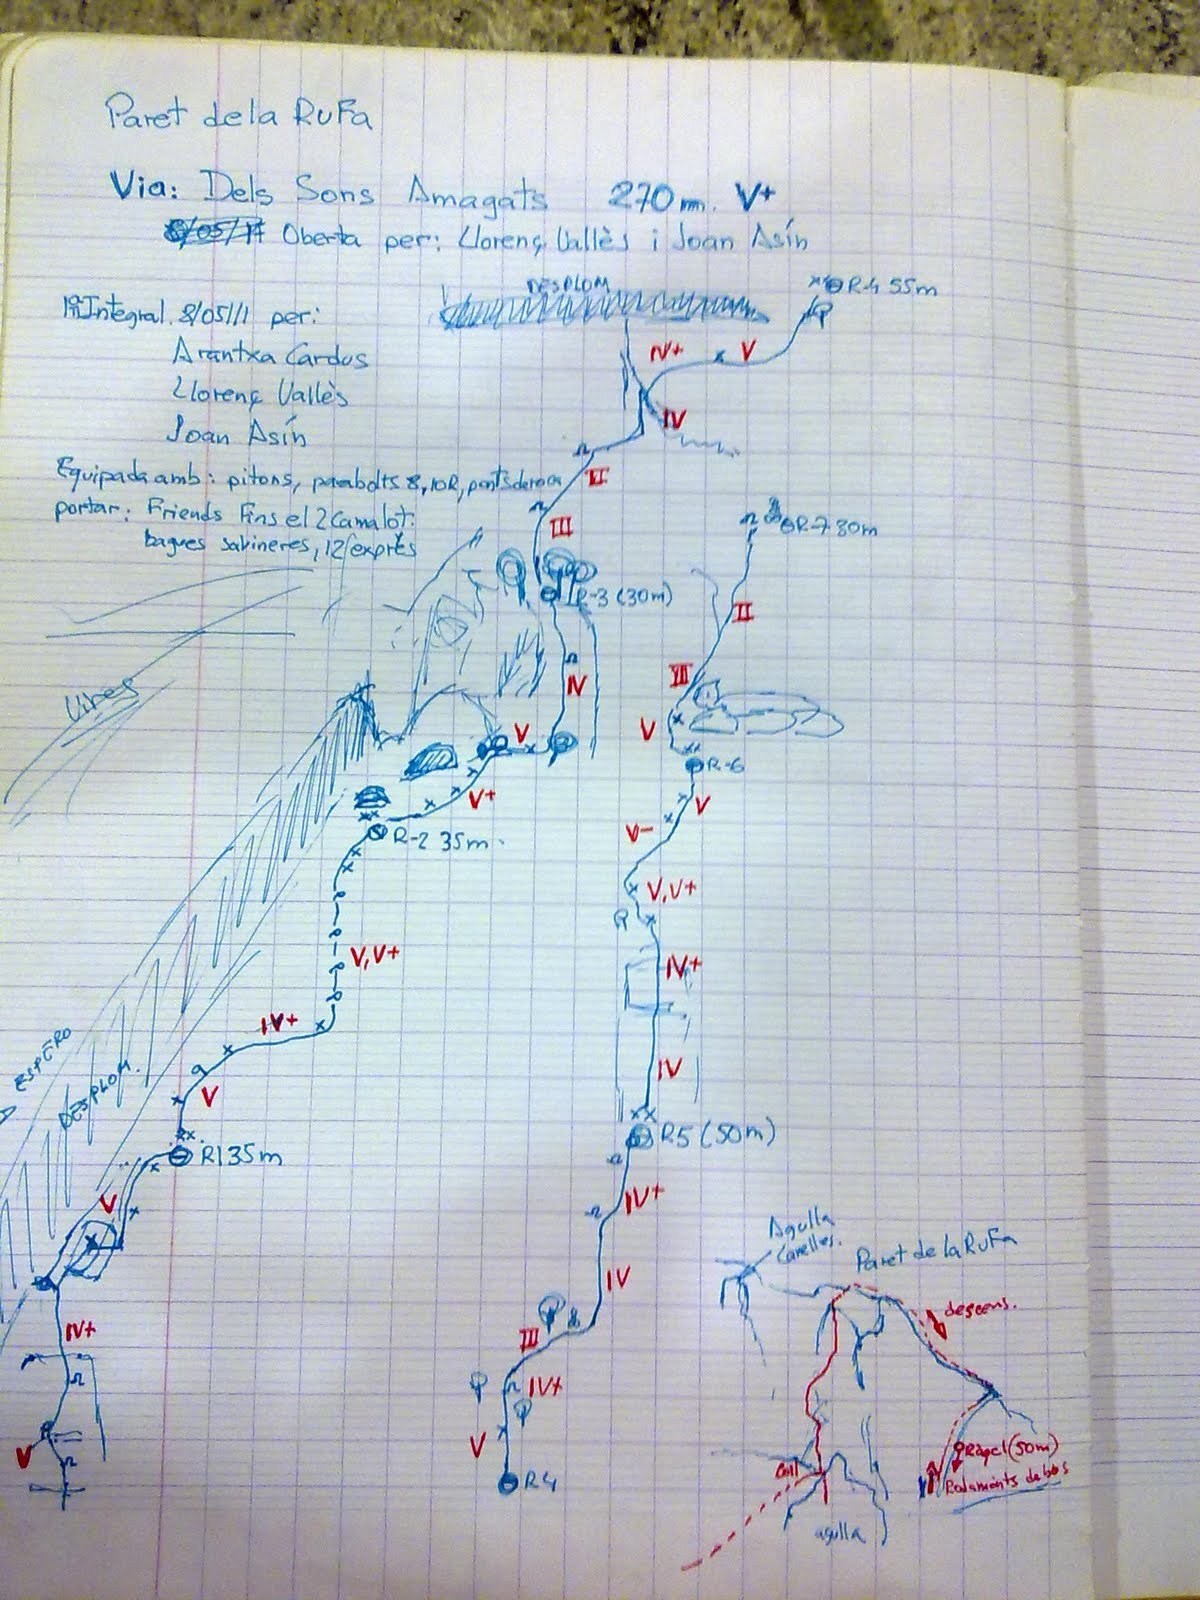 Paret de la RuFa
Via: Dels Sons Amagats 270 m. V+
Oberta per: Llorenç Vallès i Joan Asín
Integral. 8/05/11 per:
Arantxa Cardus
Llorenç Vallès
Joan Asín
Equipada amb: pitons, parabolts 8, 10R, ponts de roca
portar: Friends Fins el 2 Camalot.
bagues savineres, 12 exprés
DESPLOM
R-4 55m
IV+ V
IV
II
III
R-3 (30m)
IV
V
V+
R-2 35m.
V, V+
IV+
V
R1 35m
V
IV+
V
ESPERO
DESPLOM.
R-7 30m
II
III
V
R-6
V
V-
V, V+
IV+
IV
R5 (50m)
IV+
IV
III
IV+
V
R4
Agulla
Canelles.
Paret de la RuFa
descens.
Ràpel (50m)
Coll
agulla